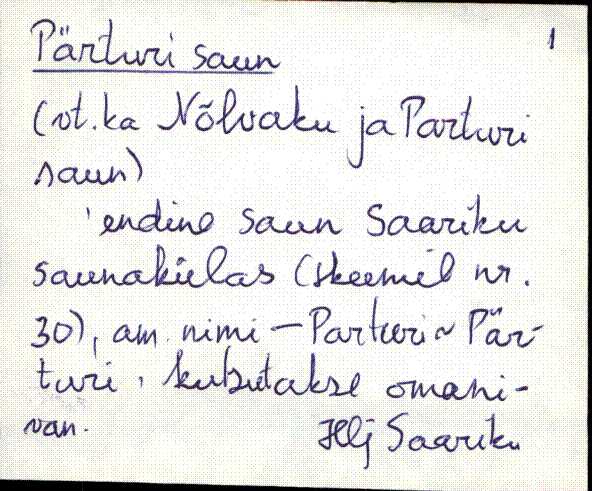 Pärturi saun 1
(vt. ka Nõlvaku ja Parturi
saun)
'endine saun Saariku
saunakülas (skeemil nr.
30), am. nimi – Parturi ~ Pär-
turi, kutsutakse omani-
Hlj Saariku